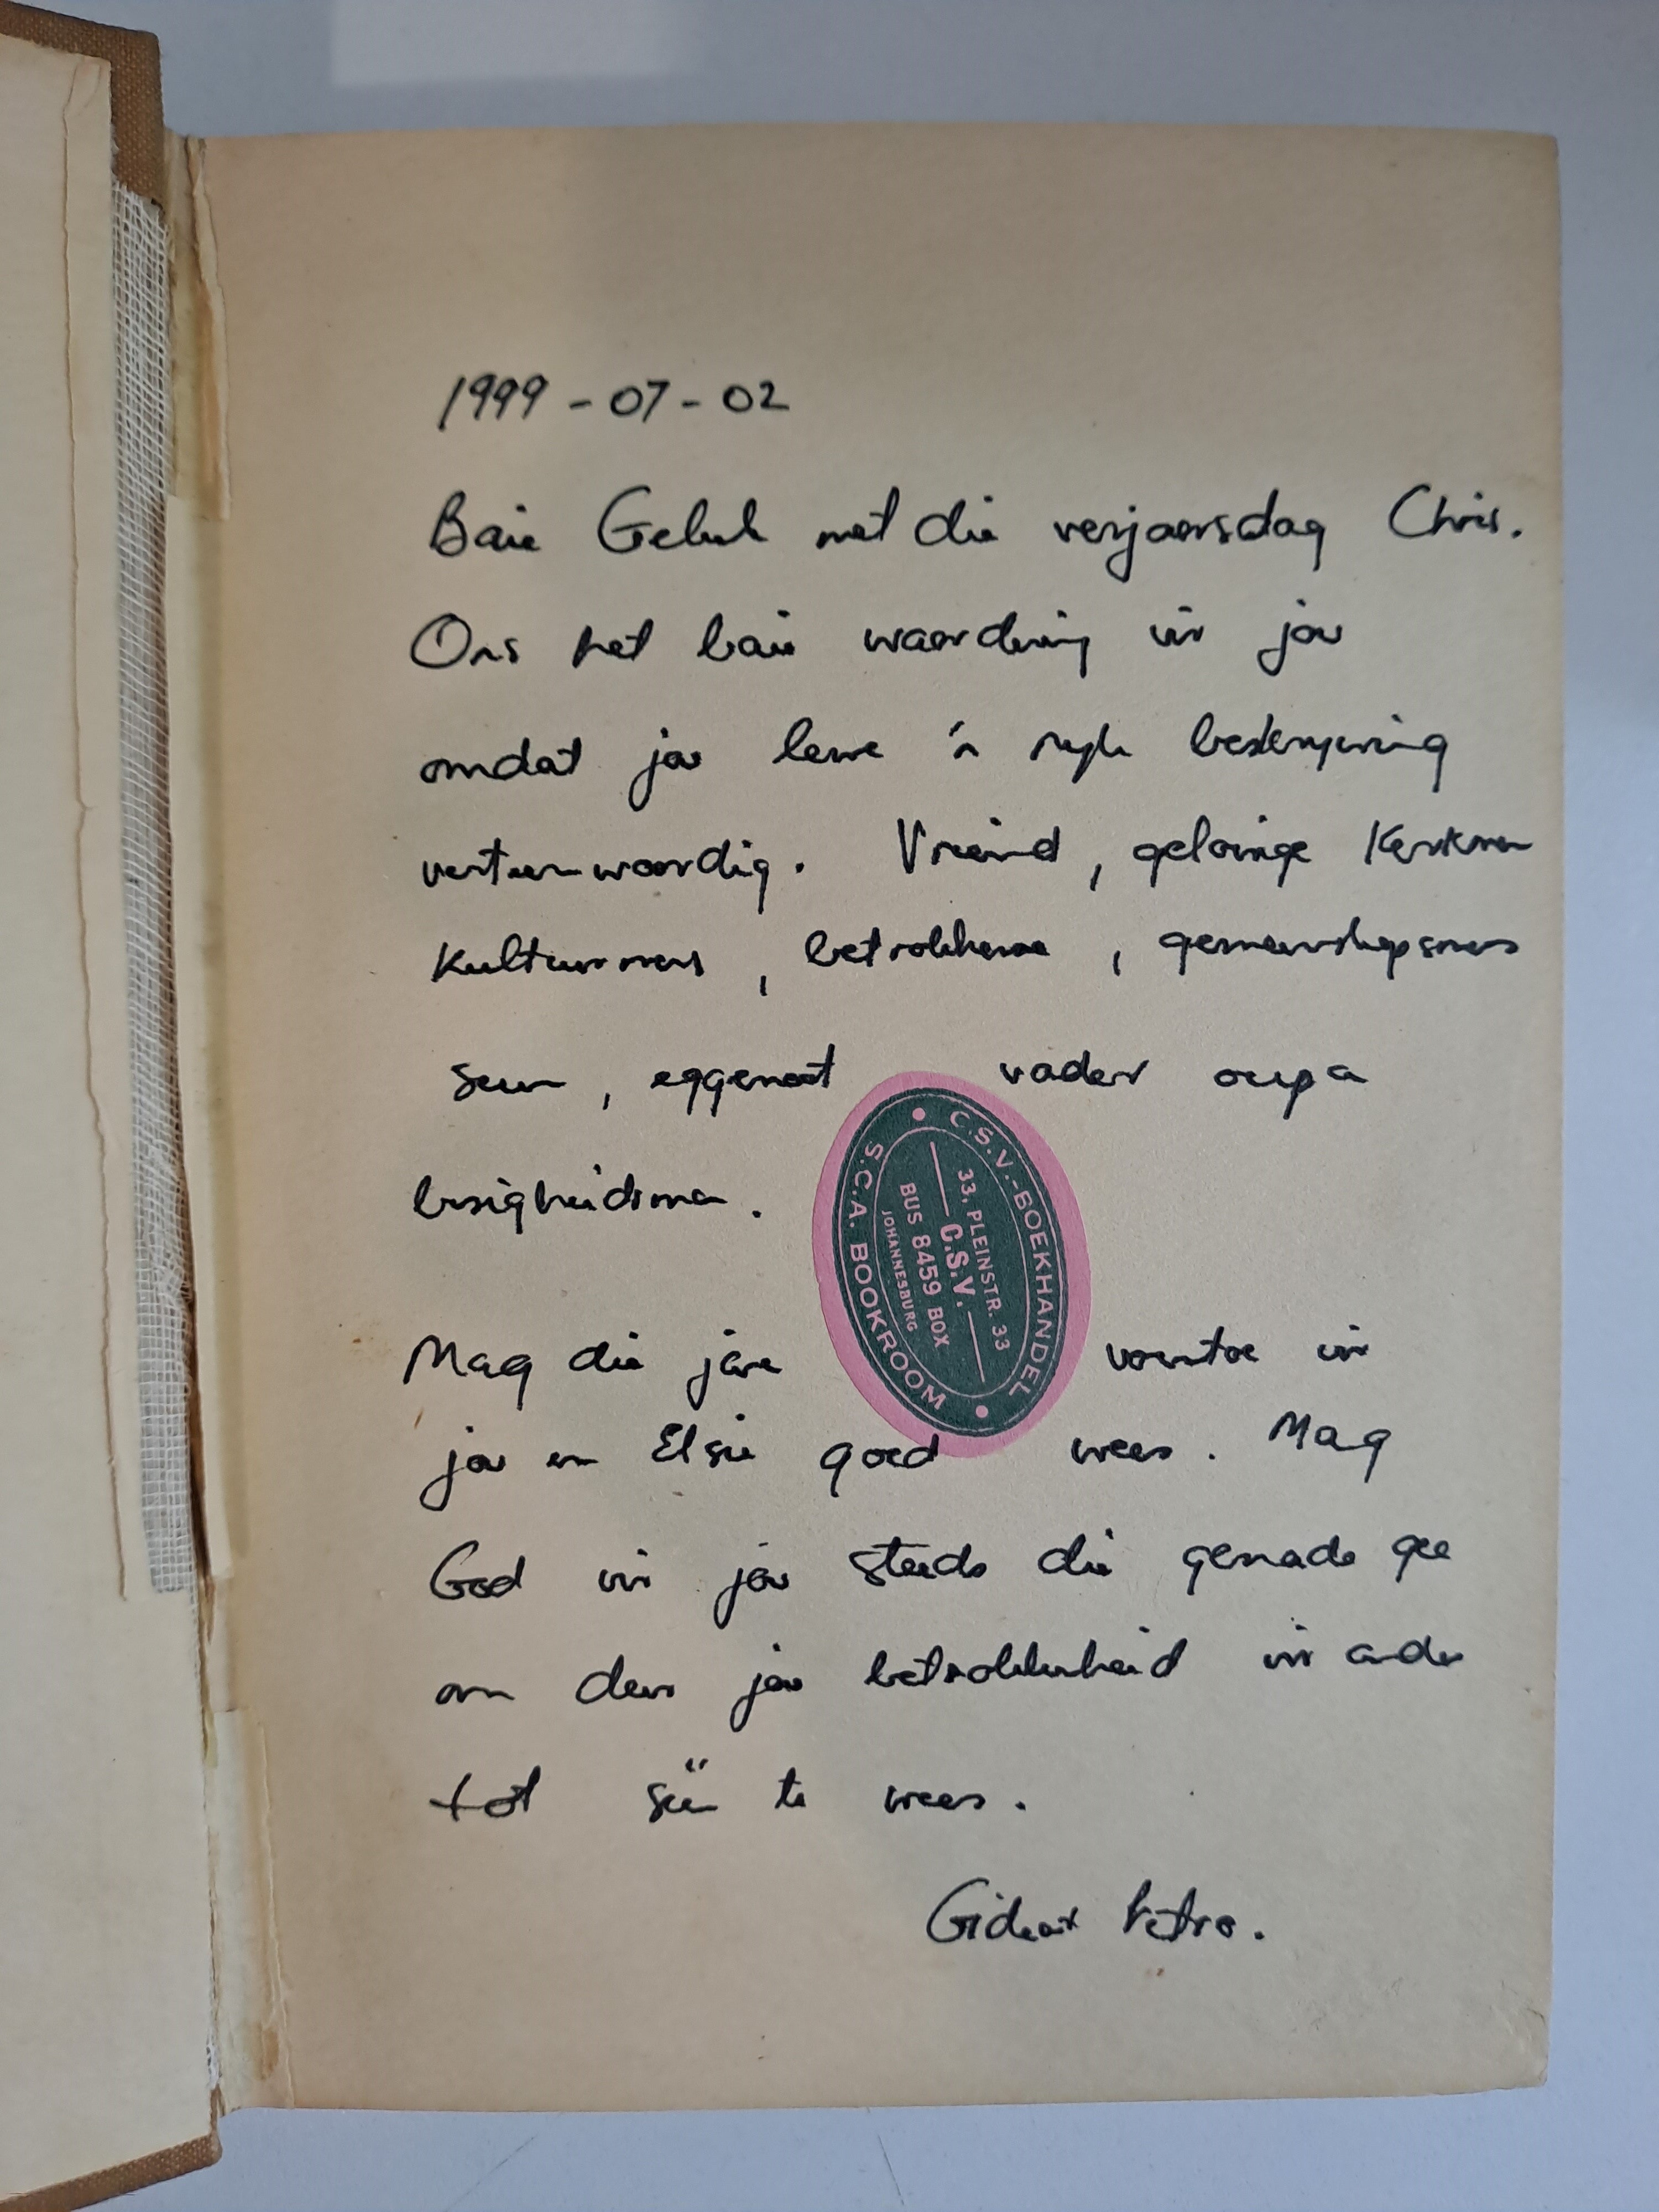 1999-07-02
Baie Geluk met die verjaarsdag Chris.
Ons het baie waardering vir jou
omdat jou lewe 'n ryk beskrywing
verteenwoordig. Vriend, gelowige Kerkman
Kultuurmens, betrokkene, gemeenskapsmens
seun, eggenoot vader oupa
besigheidsman.
C.S.V.-BOEKHANDEL
33, PLEINSTR. 33
C.S.V.
BUS 8459 BOX
JOHANNESBURG
S.C.A. BOOKROOM
Mag die jare vorentoe vir
jou en Elsie goed wees. Mag
God vir jou steeds die genade gee
om deur jou betrokkenheid vir ander
tot seën te wees.
Petro.